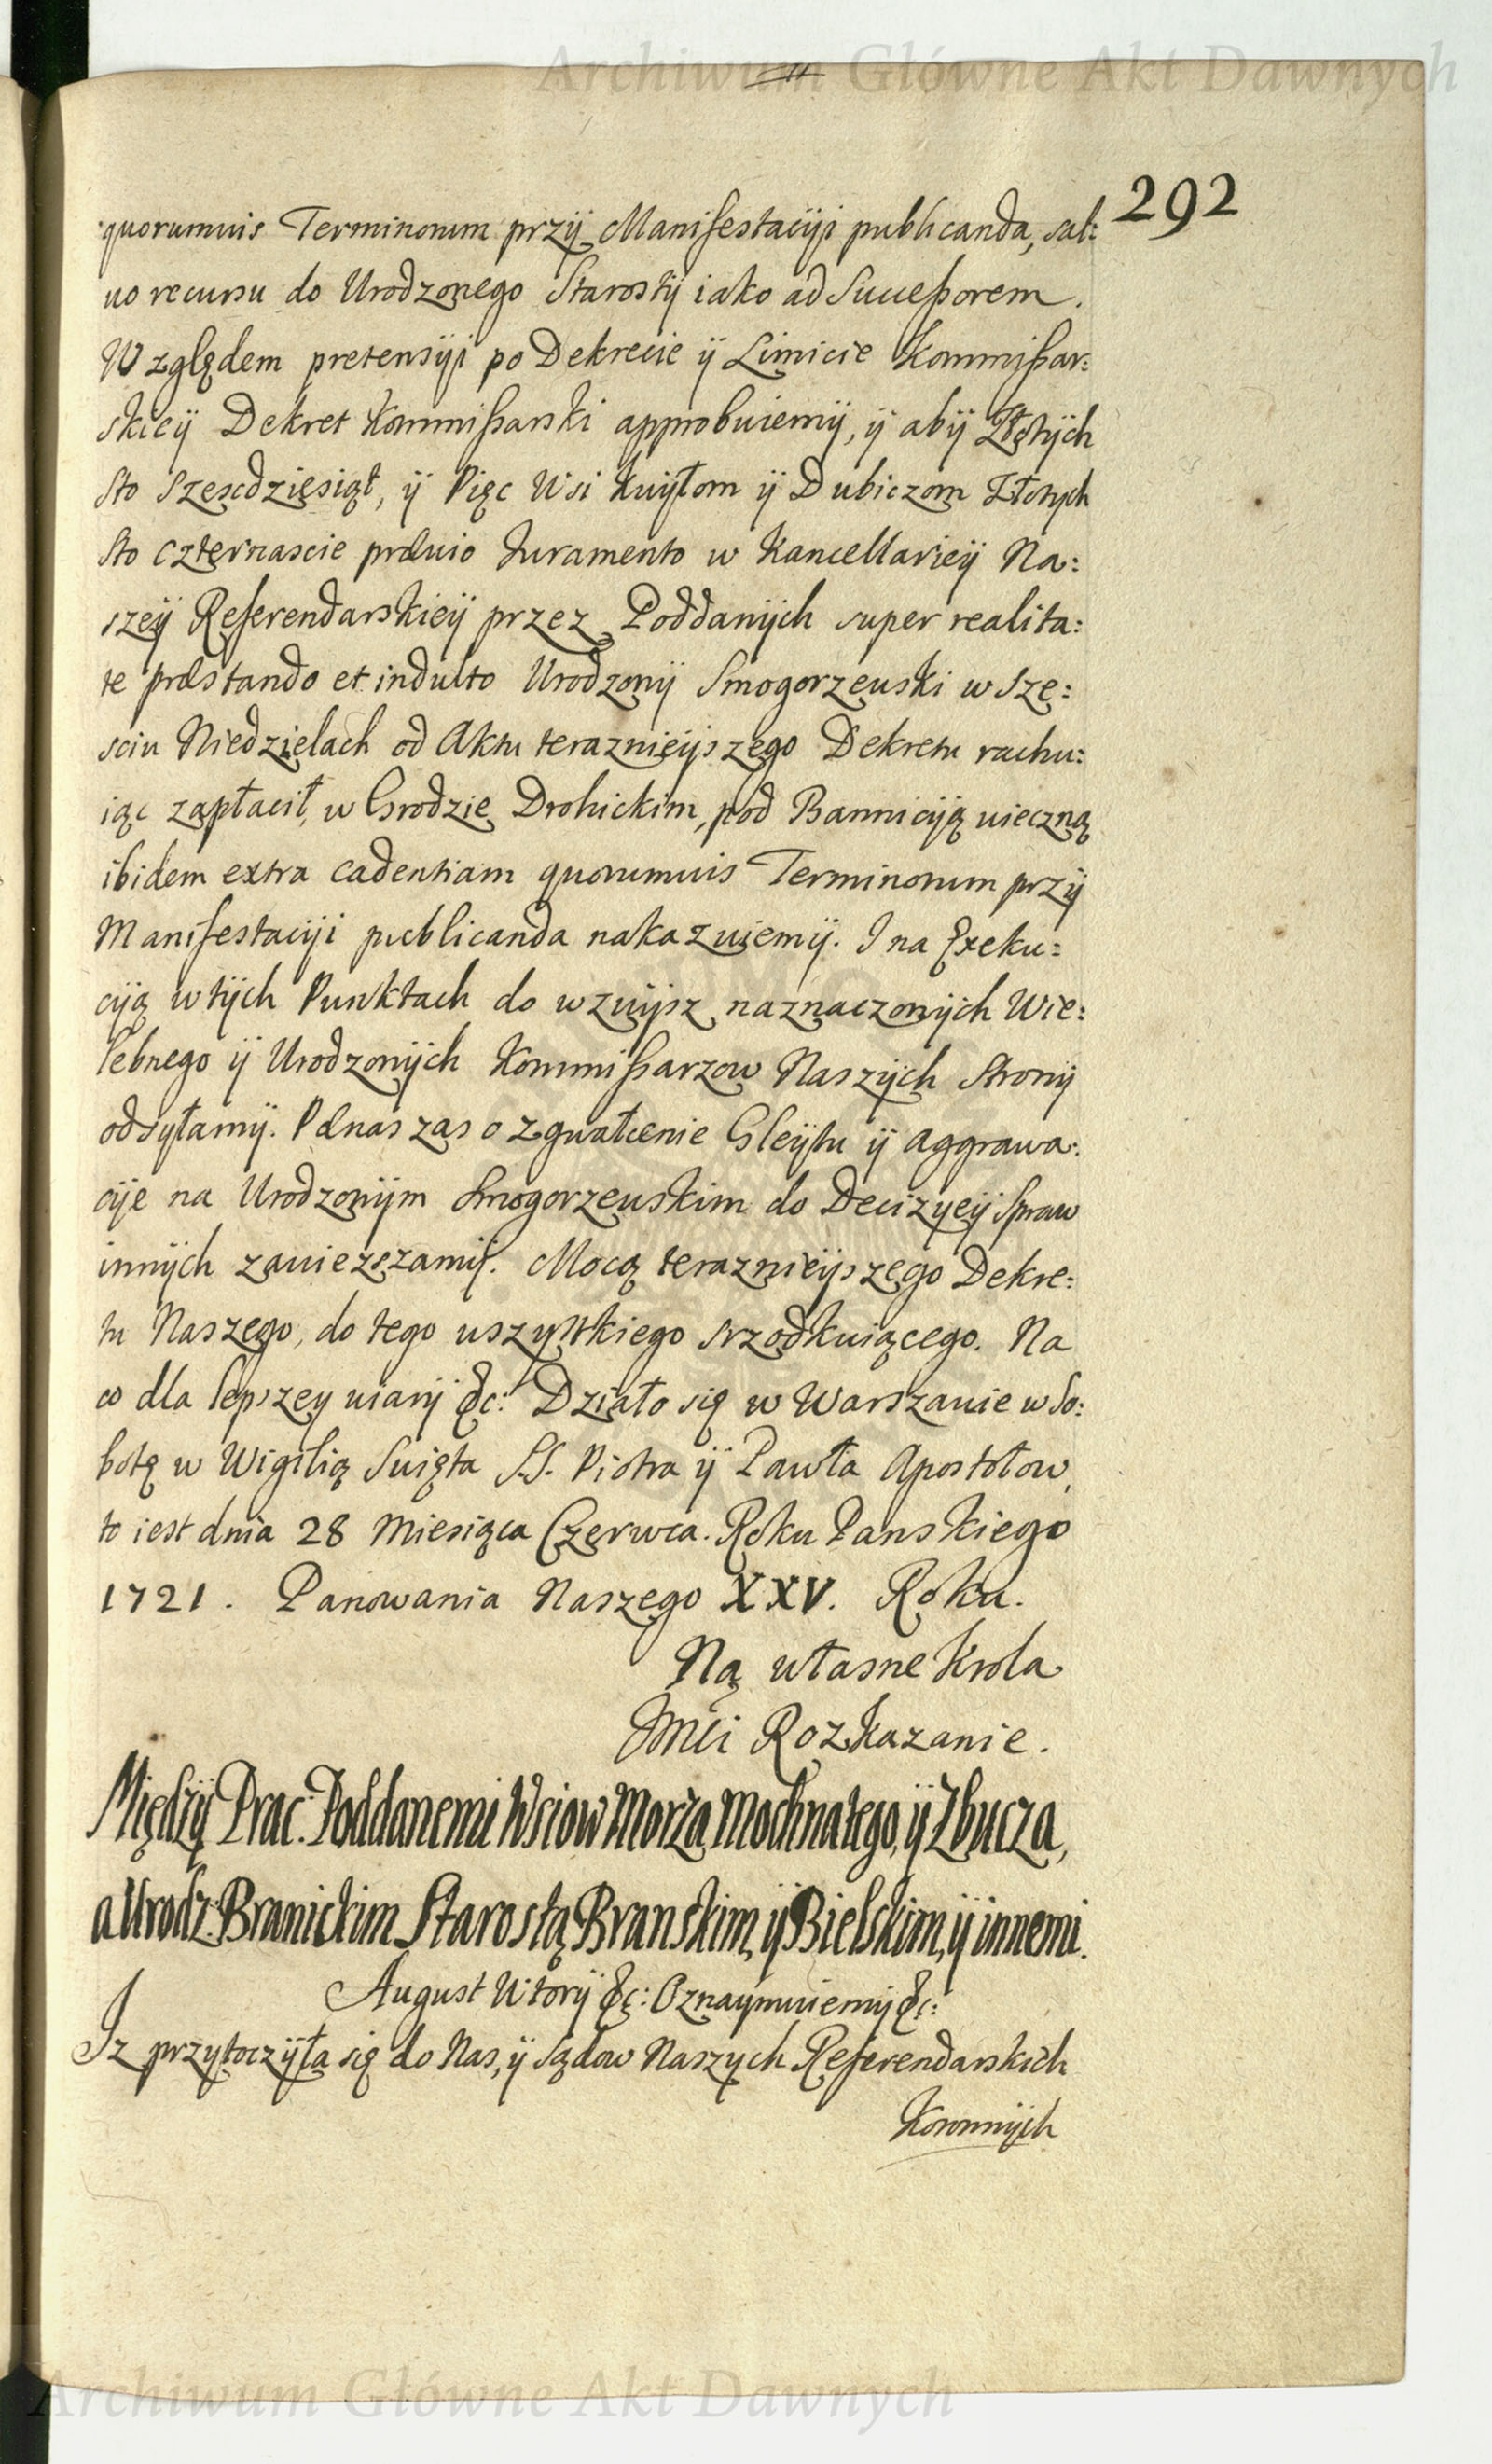 Archiwum Główne Akt Dawnych
292
quorumuis Terminorum przÿ Manifestacÿi publicanda, sal:
uo recursu do Urodzonego Starostÿ iako ad Successorem.
Względem pretensÿi po Dekrecie ÿ Limicie Kommißar:
skieÿ Dekret Kommißarski approbuiemÿ, ÿ abÿ Złotÿch
sto szescdzięsiąt, ÿ Pięc Wsi Kuÿłom ÿ Dubiczom Złotych
sto czternascie præuio Iuramento w Kancellarieÿ Na:
szeÿ Referendarskieÿ przez Poddanÿch super realita:
te præstando et indulto Urodzonÿ Smogorzeuski w sze:
sciu Niedzielach od Aktu teraznieÿszego Dekretu rachu:
iąc zapłacił, w Grodzie Drohickim, pod Bannicÿą uieczną
ibidem extra cadentiam quorumuis Terminorum przÿ
Manifestacÿi publicanda nakazuiemÿ. I na Exeku:
cÿą w tÿch Punktach do wzuÿsz naznaczonÿch Wie:
lebnego ÿ Urodzonÿch Kommißarzow Naszÿch Stronÿ
odsyłamÿ. Pænas zas o zguałcenie Gleÿtu ÿ aggrawa:
cÿe na Urodzonÿm Smogorzeuskim do Decizyeÿ Spraw
innÿch zauieszamÿ. Mocą teraznieÿszego Dekre:
tu Naszego, do tego uszystkiego srzodkuiącego. Na
co dla lepszey uiarÿ &c: Działo się w Warszauie w So:
botę w Wigilią Suięta S.S. Piotra ÿ Pawła Apostołow,
to iest dnia 28 Miesiąca Czerwca. Roku Panskiego
1721. Panowania Naszego XXV. Roku.
Na własne Krola
Jmći Rozkazanie.
Międzÿ Prac: Poddanemi Wsiow Morza Mochnatego, ÿ Zbucza,
a Urodz: Branickim Starostą Branskim, ÿ Bielskim, ÿ innemi.
August Wtorÿ &c: Oznaymuiemÿ &c:
Iz przytoczÿła się do Nas, ÿ Sądow Naszych Referendarskich
Koronnÿch
Archiwum Główne Akt Dawnych